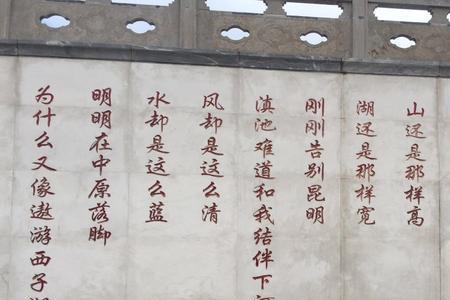 山还是那样高
湖还是那样宽
刚刚告别昆明
滇池难道和我结伴下
风却是这么清
水却是这么蓝
明明在中原落脚
为什么又像遨游西子